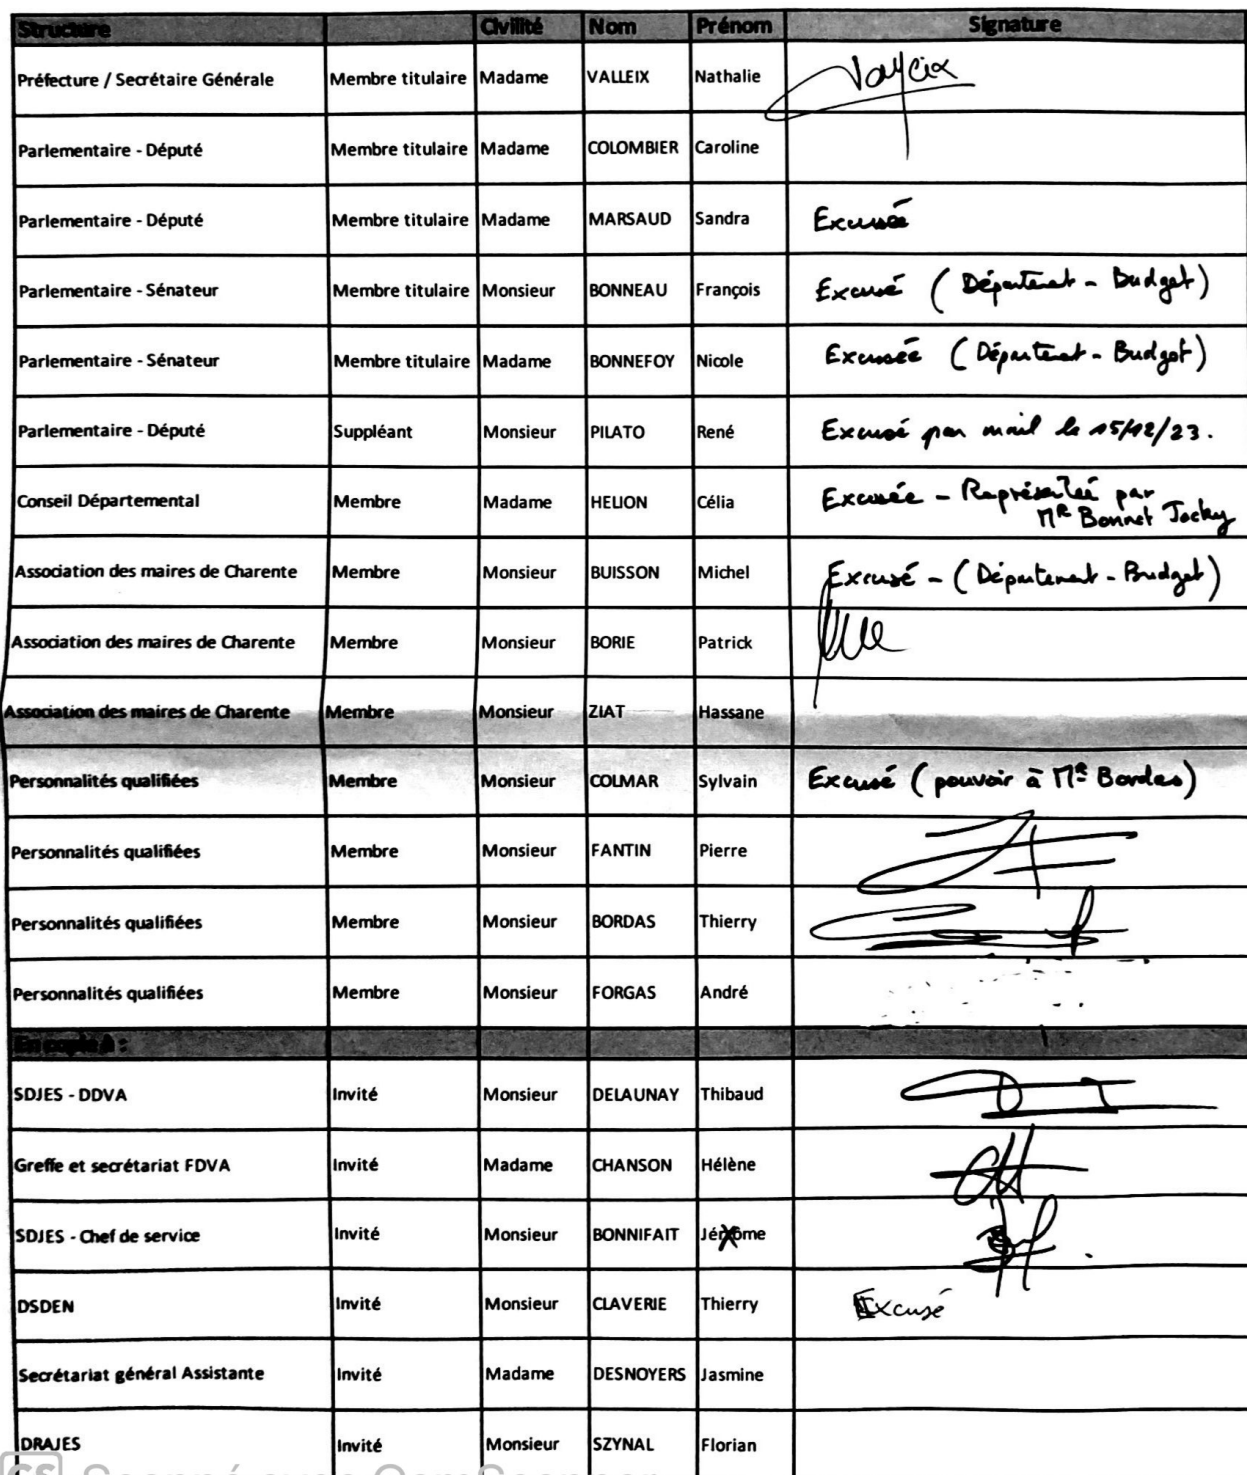 Structure Civilité Nom Prénom Signature
Préfecture / Secrétaire Générale Membre titulaire Madame VALLEIX Nathalie
Parlementaire - Député Membre titulaire Madame COLOMBIER Caroline
Parlementaire - Député Membre titulaire Madame MARSAUD Sandra Excusée
Parlementaire - Sénateur Membre titulaire Monsieur BONNEAU François Excusé ( Département - Budget)
Parlementaire - Sénateur Membre titulaire Madame BONNEFOY Nicole Excusée ( Département - Budget)
Parlementaire - Député Suppléant Monsieur PILATO René Excusé par mail le 15/12/23.
Conseil Départemental Membre Madame HELION Célia Excusée - Représentée par
Mr Bonnet Jacky
Association des maires de Charente Membre Monsieur BUISSON Michel Excusé - ( Département - Budget)
Association des maires de Charente Membre Monsieur BORIE Patrick
Association des maires de Charente Membre Monsieur ZIAT Hassane
Personnalités qualifiées Membre Monsieur COLMAR Sylvain Excusé ( pouvoir à Mr Bordas)
Personnalités qualifiées Membre Monsieur FANTIN Pierre
Personnalités qualifiées Membre Monsieur BORDAS Thierry
Personnalités qualifiées Membre Monsieur FORGAS André
En copie à :
SDJES - DDVA Invité Monsieur DELAUNAY Thibaud
Greffe et secrétariat FDVA Invité Madame CHANSON Hélène
SDJES - Chef de service Invité Monsieur BONNIFAIT Jérôme
DSDEN Invité Monsieur CLAVERIE Thierry Excusé
Secrétariat général Assistante Invité Madame DESNOYERS Jasmine
DRAJES Invité Monsieur SZYNAL Florian
CS Scanné avec CamScanner